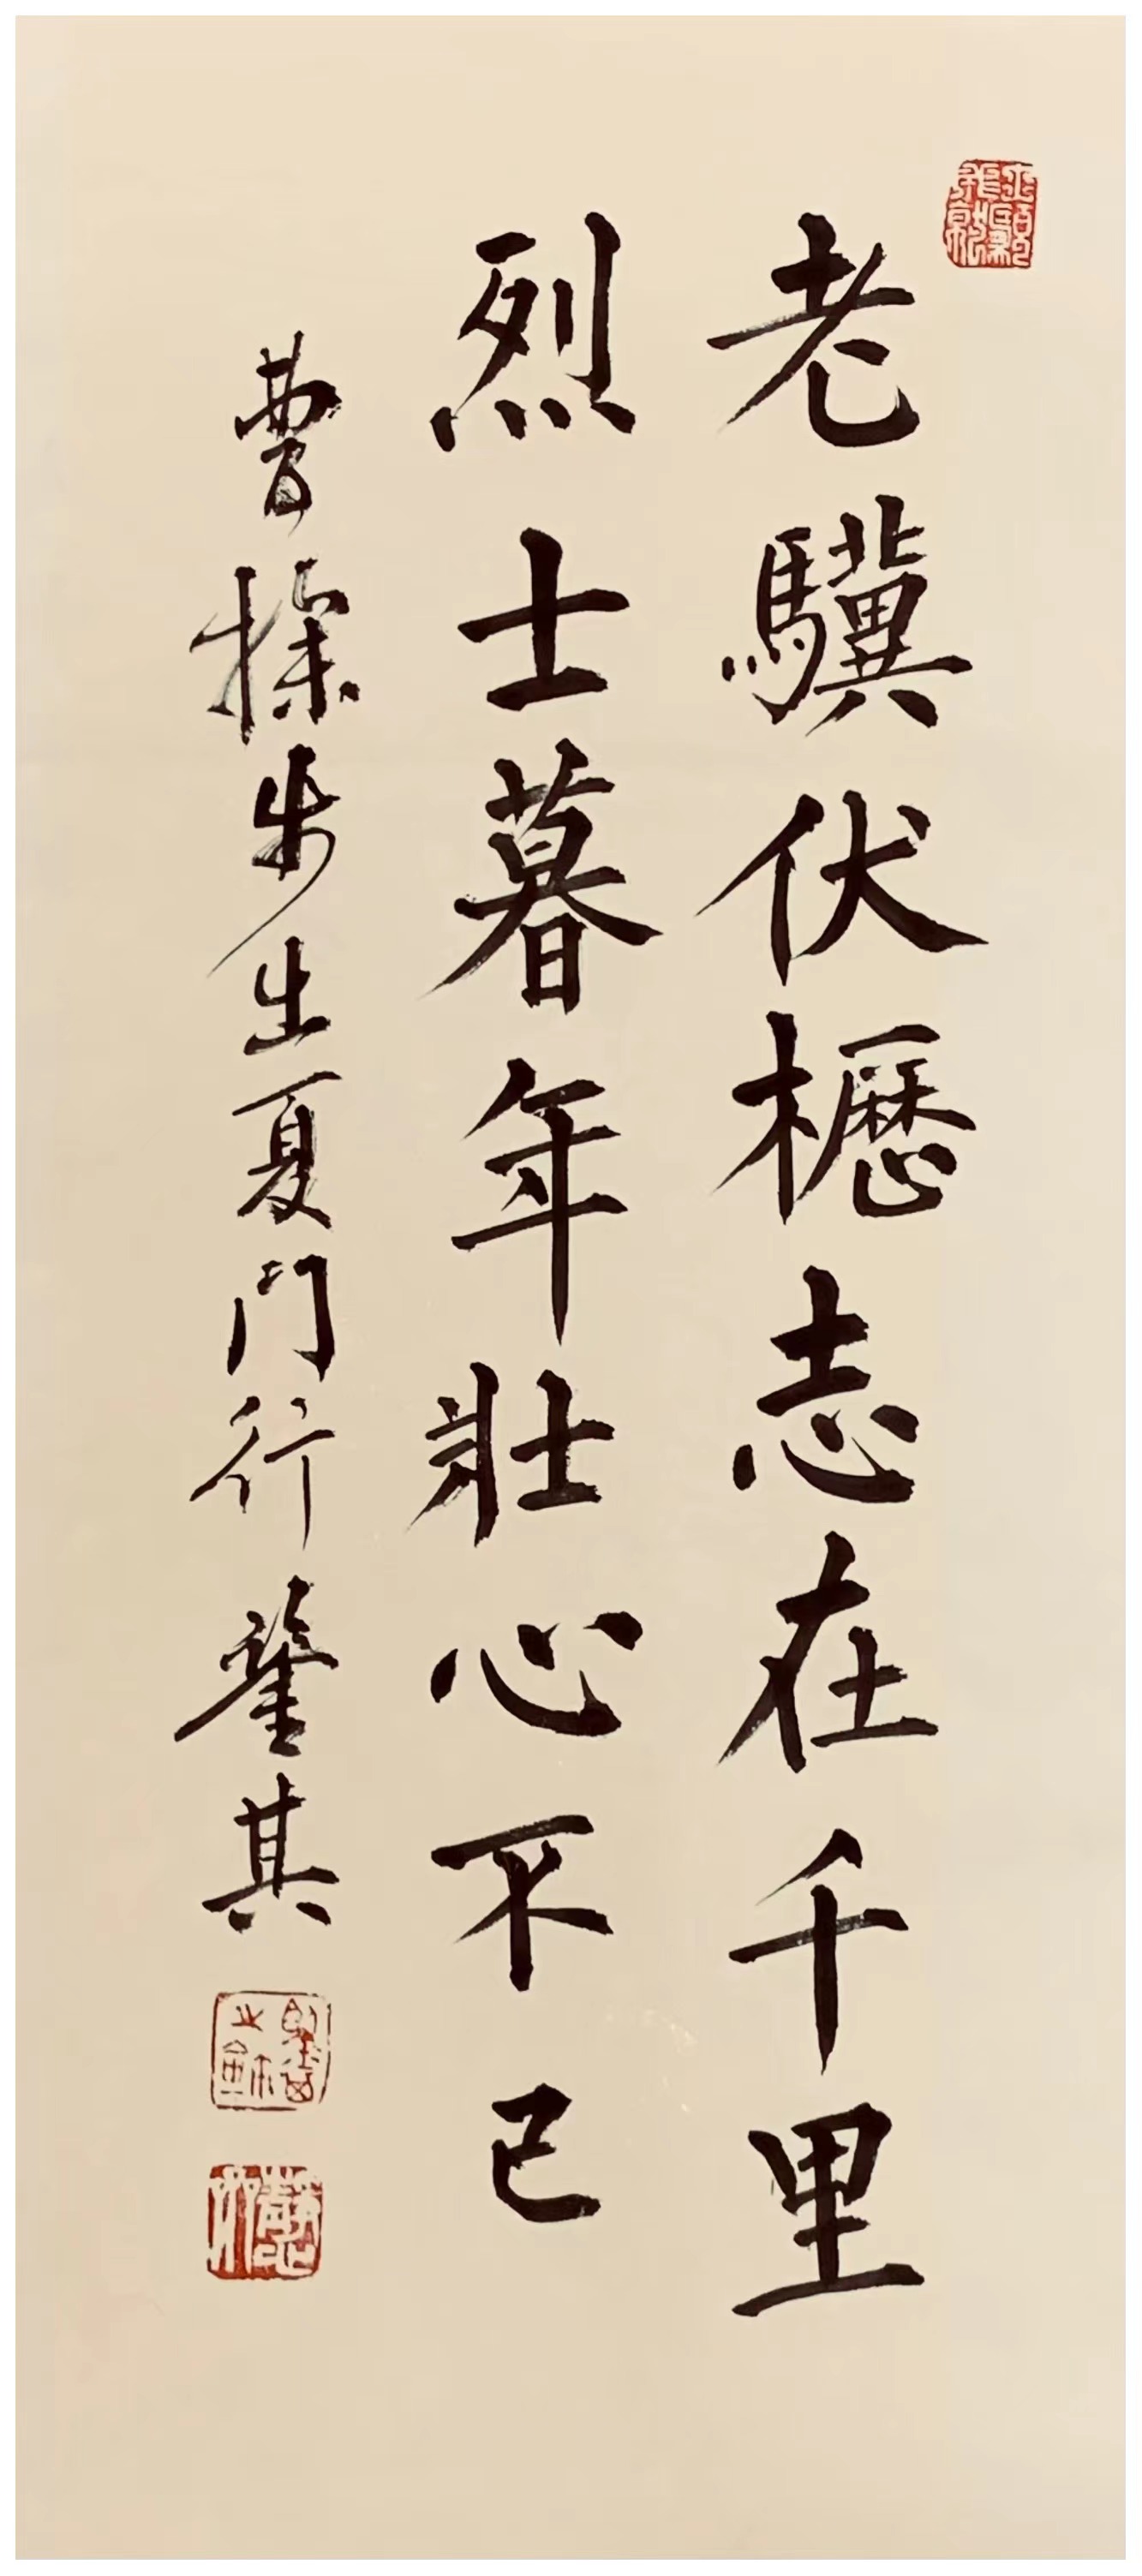 老驥伏櫪志在千里
烈士暮年壯心不已
曹操步出夏門行 其